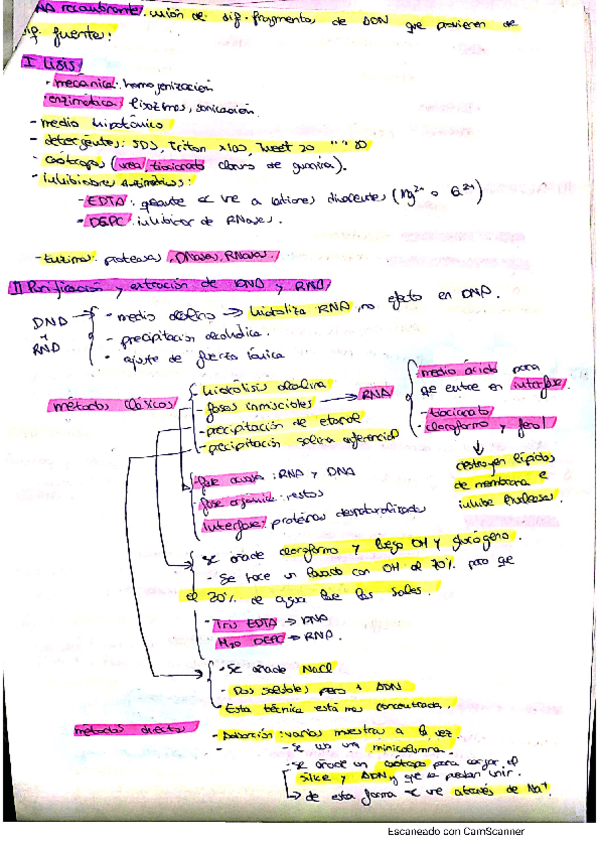 DNA recombinante: unión de dif. fragmentos de ADN que provienen de
dif. fuentes:
I Lisis
- mecánica: homogenización
- enzimática: lisozimas, sonicación.
- medio hipotónico
- detergentes: SDS, Triton x100, Tweet 20 " " 80
- caótropos (urea, tiocianato cloruro de guanidina).
- inhibidores enzimáticos:
- EDTA: quelante se une a cationes divalentes (Mg2+ o Ca2+)
- DEPC: inhibidor de RNasas.
- enzimas: proteasas, DNasas, RNasas.
II Purificación y extracción de DNA y RNA
DNA
+
RNA
- medio alcalino → hidroliza RNA, no efecto en DNA.
- precipitación alcohólica.
- ajuste de fuerza iónica
métodos clásicos
- hidrólisis alcalina
- fases inmiscibles → RNA
- precipitación de etanol
- precipitación salina diferencial
- medio ácido para
que entre en interfase.
- tiocianato
- cloroformo y fenol
↓
destruyen lípidos
de membrana e
inhibe nucleasas.
- fase acuosa: RNA y DNA
- fase orgánica: restos
interfase: proteínas desnaturalizadas
Se añade cloroformo y luego OH y glucógeno.
- Se hace un lavado con OH al 70% para que
el 30% de agua lave las sales.
- Tris EDTA → DNA
- H2O DEPC → RNA.
- Se añade NaCl
- Dos solubles pero + ADN
- Esta técnica está más concentrada.
métodos directos
- Adsorción: varias muestras a la vez.
- Se usa una minicolumna.
- se añade un caótropo para cargar el
sílice y ADN, y que se puedan unir.
→ de esta forma se une através de Na+.
Escaneado con CamScanner